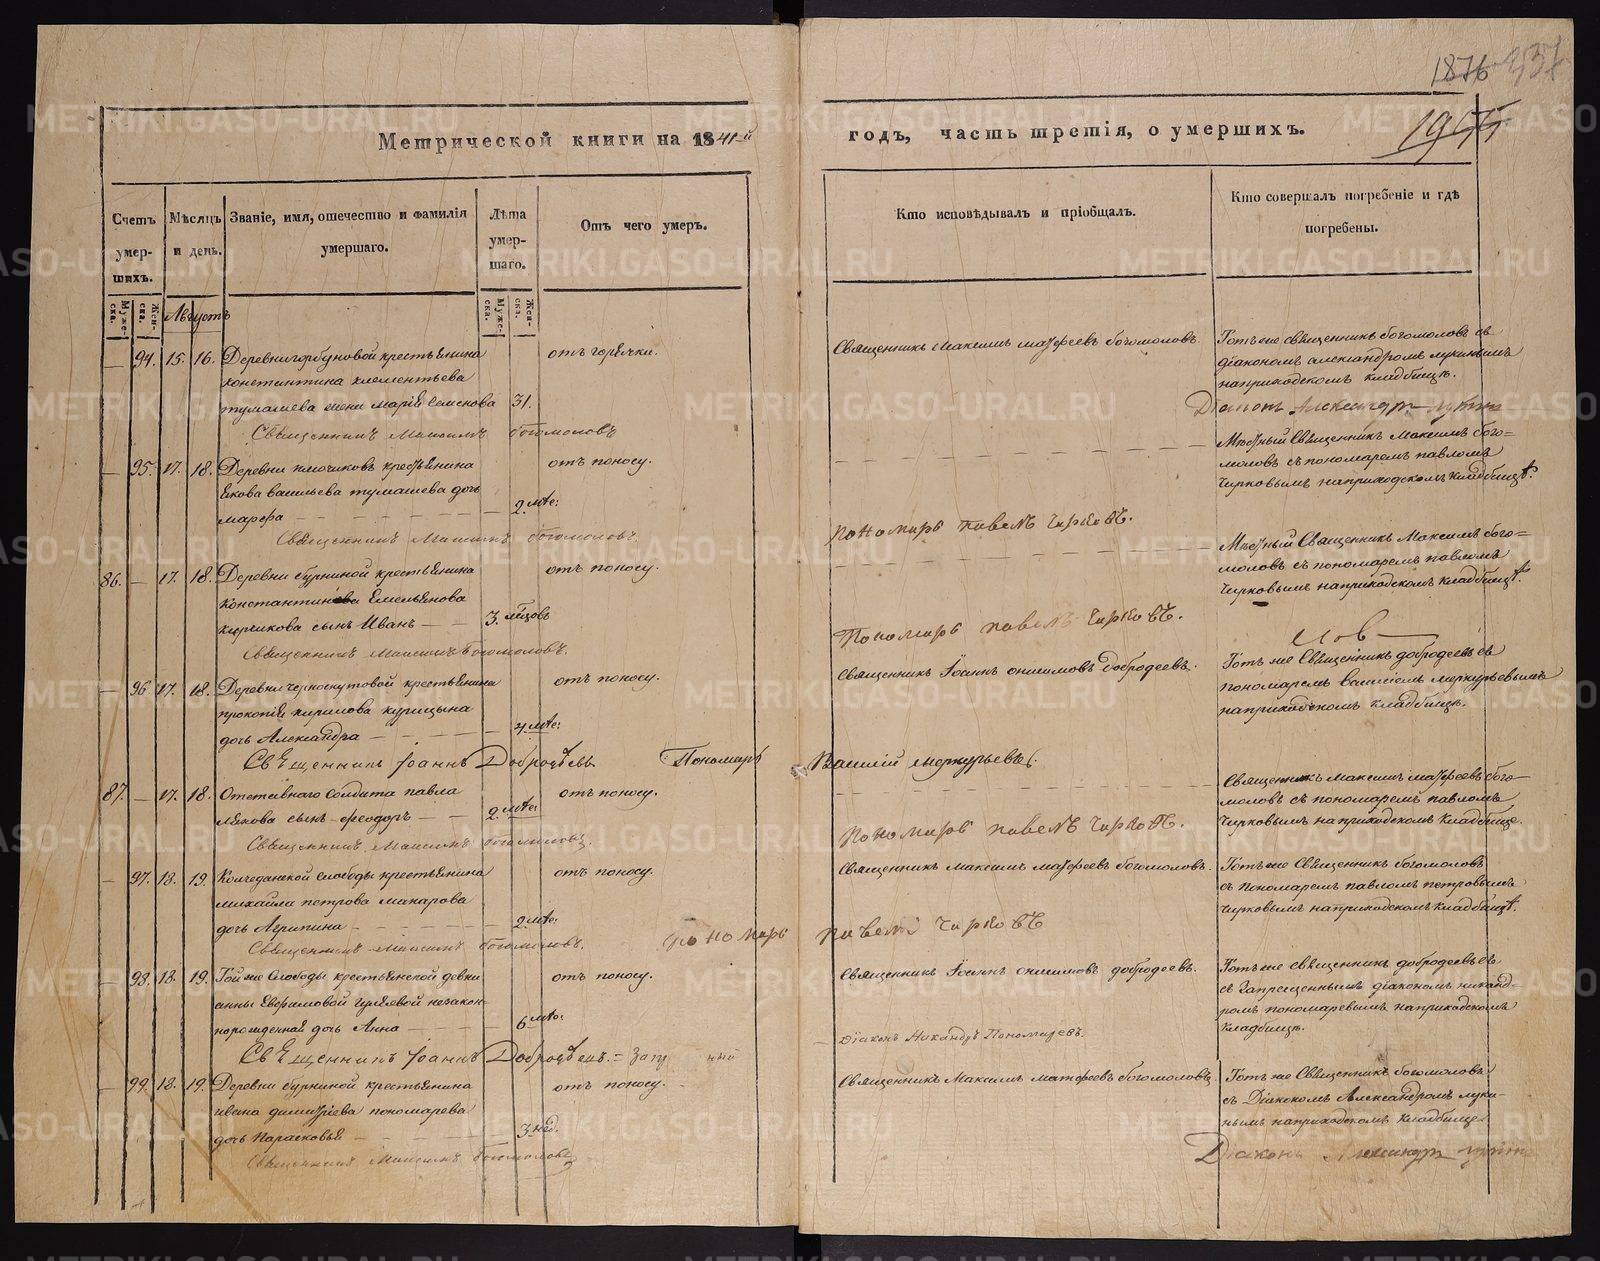 1876 437
1955
Метрической книги на 1841-й
годъ, часть третія, о умершихъ.
Счетъ умер-шихъ.
Мѣсяцъ и день.
Званіе, имя, отечество и фамилія умершаго.
Лѣта умер-шаго.
Отъ чего умеръ.
Кто исповѣдывалъ и пріобщалъ.
Кто совершалъ погребеніе и гдѣ погребены.
Муже-ска.
Жен-ска.
Августъ
Муже-ска.
Жен-ска.
— 94. 15. 16. Деревни горбуновой крестьянина
константина клементьева
тумашева жена марія семенова 31.
отъ горячки.
Священникъ Максимъ матфеевъ богомоловъ.
Тотъ же священникъ богомоловъ съ
діакономъ александромъ лукинымъ
на приходскомъ кладбищѣ.
Священникъ Максимъ богомоловъ
Діаконъ Александръ лукинъ
— 95. 17. 18. Деревни ключиковъ крестьянина
якова васильева тумашева дочь
марфа — 2. мѣс:
отъ поносу.
Мѣстный Священникъ Максимъ бого=
моловъ съ пономаремъ павломъ
чирковымъ на приходскомъ кладбищѣ.
Священникъ Максимъ богомоловъ.
Пономарь павелъ чирковъ.
86. — 17. 18. Деревни бурниной крестьянина
константина Емельянова
сынъ Иванъ — 3. мѣсцовъ
отъ поносу.
Мѣстный Священникъ Максимъ бого=
моловъ съ пономаремъ павломъ
чирковымъ на приходскомъ кладбищѣ.
Священникъ Максимъ Богомоловъ.
Пономарь павелъ чирковъ.
— 96. 17. 18. Деревни черноскутовой крестьянина
прокопія кирилова курицына
дочь Александра — 4. мѣс:
отъ поносу.
Священникъ Іоаннъ онисимовъ добродеевъ.
Тотъ же Священникъ добродеевъ съ
пономаремъ василіемъ меркурьевымъ
на приходскомъ кладбищѣ.
Священникъ Іоаннъ Добродѣевъ. Пономарь Василій меркурьевъ.
87. — 17. 18. Отставнаго солдата павла
сынъ феодоръ — 2. мѣс:
отъ поносу.
Священникъ Максимъ матфеевъ бого—
моловъ съ пономаремъ павломъ
чирковымъ на приходскомъ кладбище.
Священникъ Максимъ богомоловъ.
Пономарь павелъ чирковъ.
— 97. 18. 19. Колчеданской слободы крестьянина
михайла петрова макарова
дочь Агрипина — 2. мѣс:
отъ поносу.
Священникъ Максимъ матфеевъ богомоловъ.
Тотъ же Священникъ богомоловъ
съ пономаремъ павломъ петровымъ
чирковымъ на приходскомъ кладбищѣ.
Священникъ Максимъ богомоловъ. Пономарь павелъ чирковъ
— 98. 18. 19. Той же слободы крестьянской девки
анны Евфимовой незакон-
норожденная дочь Анна — 6. мѣс:
отъ поносу.
Священникъ Іоаннъ онисимовъ добродеевъ.
Тотъ же священникъ добродеевъ
съ запрещеннымъ діакономъ никанд-
ромъ пономаревымъ на приходскомъ
кладбищѣ.
Діаконъ Никандръ Пономаревъ.
Священникъ Іоаннъ Добродѣевъ.
— 99. 18. 19. Деревни бурниной крестьянина
ивана димитріева пономарева
дочь Парасковья — 3. нед.
отъ поносу.
Священникъ Максимъ матфеевъ богомоловъ.
Тотъ же Священникъ богомоловъ
съ Діакономъ Александромъ луки-
нымъ на приходскомъ кладбище.
Священникъ Максимъ богомоловъ
Діаконъ Александръ лукинъ
METRIKI.GASO-URAL.RU